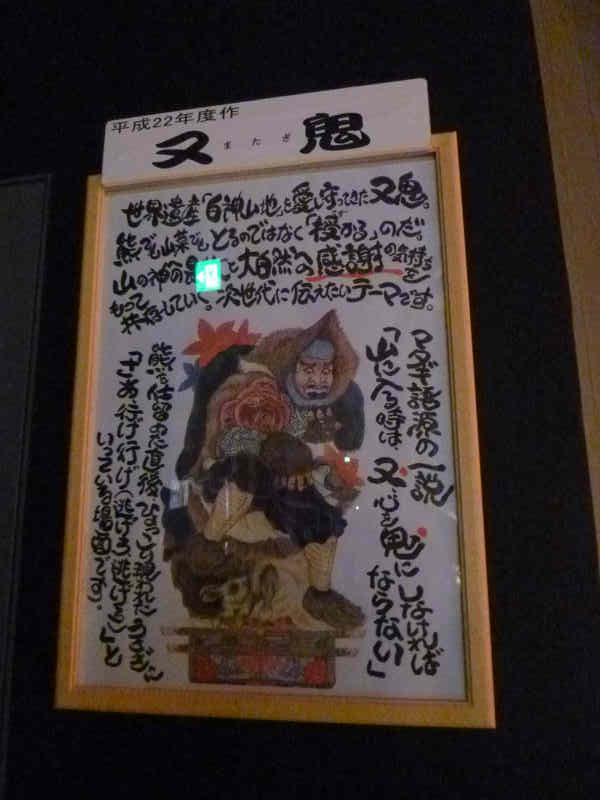 平成22年度作
又鬼
またぎ
世界遺産「白神山地」を愛し守ってきた又鬼。
熊でも山菜でもとるのではなく「授かる」のだ。
山の神への と大自然への感謝の気持ちを
もって共存していく。次世代に伝えたいテーマです。
マタギ語源の一説
「山に入る時は、
又、心を鬼に
しなければ
ならない」
熊を仕留めた直後、ひょっこり現れたうさぎに
「さあ行げ行げ(逃げろ逃げろ)」と
いっている場面です。